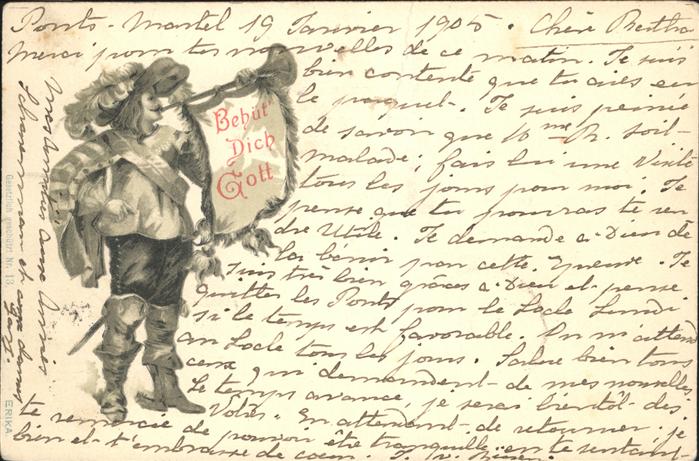 Ponts-Martel 19 Janvier 1905. Chère Bertha
Merci pour tes nouvelles de ce matin. Je suis
bien contente que tu aies eu
le paquet. Je suis peinée
de savoir que Mme R. soit
malade; fais lui une visite
tous les jours pour moi. Je
pense que tu pourras te ren-
dre utile. Je demande à Dieu de
la bénir par cette épreuve. Je
suis très bien grâces à Dieu et pense
quitter les Ponts pour le Locle Lundi
si le temps est favorable. On m'attend
au Locle tous les jours. Salue bien tous
ceux qui demandent de mes nouvelles
Le temps avance, je serai bientôt des
Vôtres. En attendant de retourner je
te remercie de pouvoir être tranquille en te sentant
bien et t'embrasse de coeur.
Behüt'
Dich
Gott
Mes amitiés aux
et aux dames
Gesetzlich geschützt Nr. 13.
ERIKA.